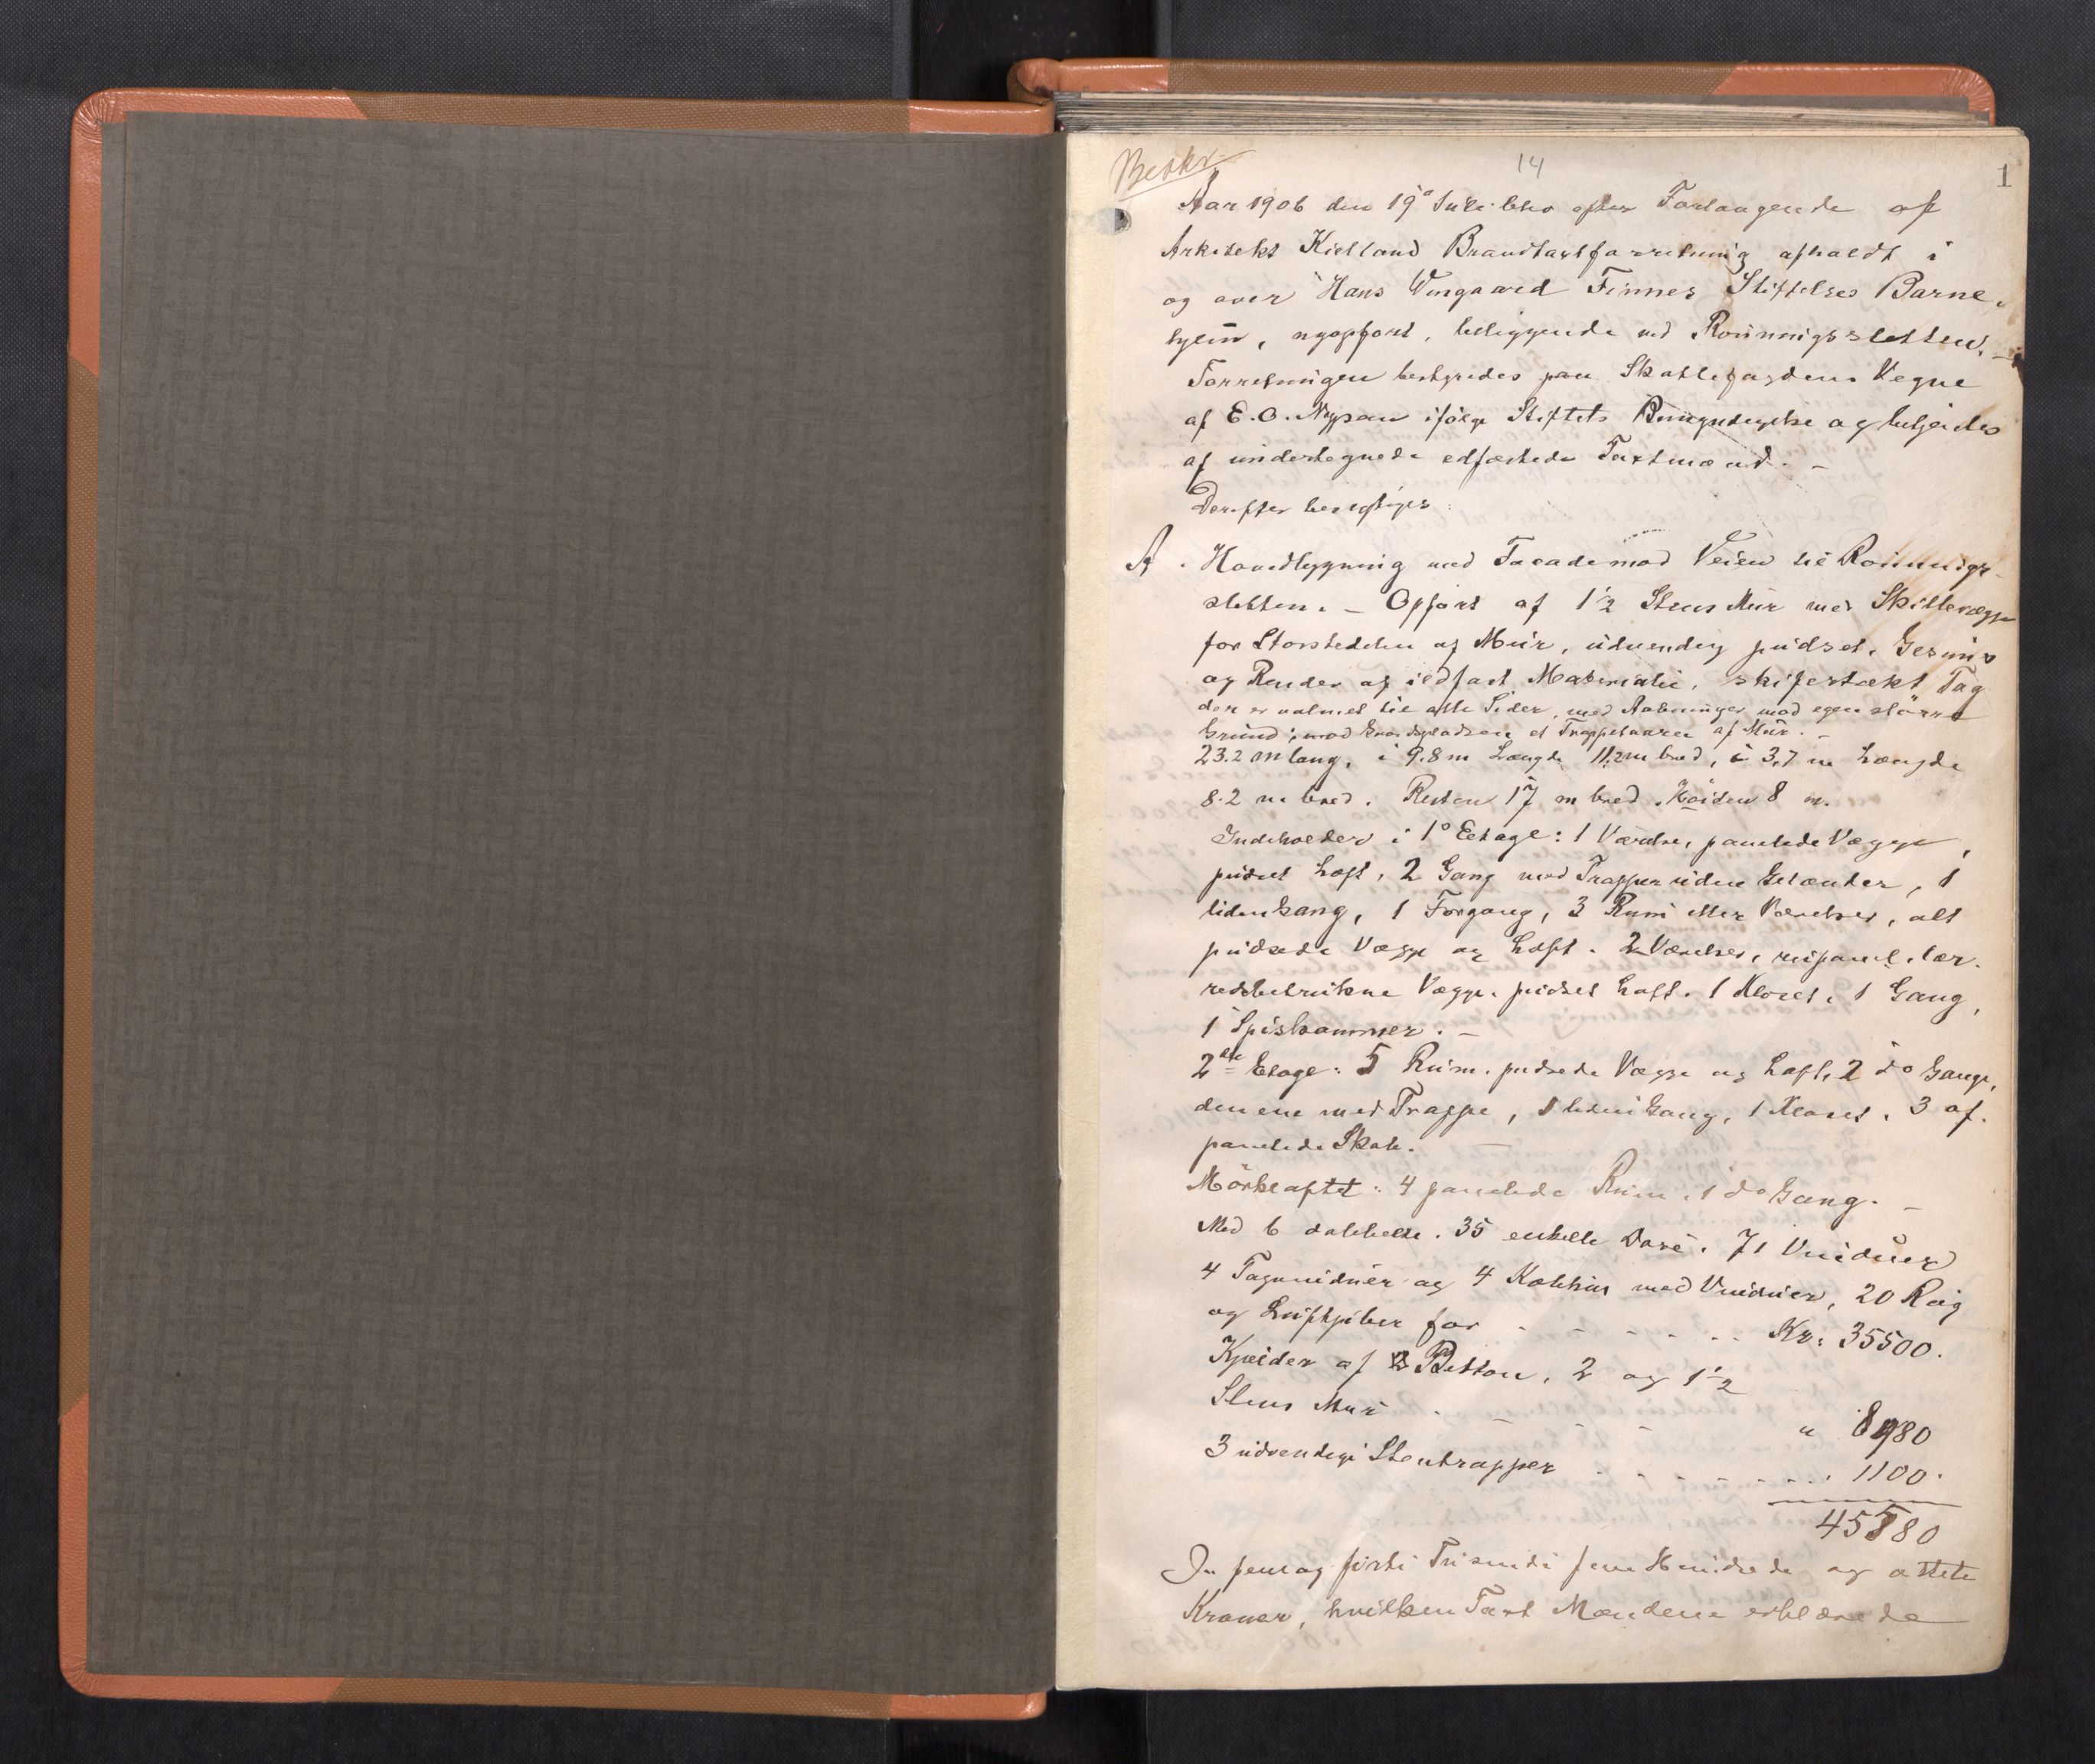 Beskr.
14
1
Aar 1906 den 19de Juli blev efter Forlangende af
Arkitekt Kielland Brandtaxtforretning afholdt i
og over Hans Wingaard Finnes Stiftelses Barne-
hjem, nyopført, beliggende ved Rominigssletten. –
Forretningen bestyredes paa Skattefogdens Vegne
af E. O. Nypan ifølge Stiftets Bemyndigelse og betjentes
af undertegnede edfæstede Taxtmænd. –
Derefter besigtiges:
A. Hovedbygning med Facade mod Veien til
sletten. – Opført af 1½ Stens Mur med Skillevægge
for Størstedelen af Mur, udvendig pudset. Gesims
og Render af ildfast Materiale, skifertækt Tag
der er valmet til alle Sider, med Aabninger mod egen større
Grund; mod Gaardspladsen et Trappetaarn af Mur. –
23.2 m lang, i 9.8 m Længde 11.2 m bred, i 3,7 m Længde
8.2 m bred. Resten 17 m bred. Høiden 8 m.
Indeholder i 1ste Etage: 1 Værelse, panelede Vægge,
pudset Loft, 2 Gang med Trapper uden Gelænder, 1
liden Gang, 1 Forgang, 3 Rum eller Værelser, alt
pudsede Vægge og Loft. 2 Værelser, rupanel, lær-
redsbetrukne Vægge, pudset Loft. 1 Kloset, 1 Gang,
1 Spiskammer. –
2den Etage: 5 Rum, pudsede Vægge og Loft, 2 do Gange,
den ene med Trappe, 1 liden Gang, 1 Kloset, 3 af-
panelede Skab. –
Mørkloftet: 4 panelede Rum, 1 do Gang. –
Med 6 dobbelte, 35 enkelte Døre, 71 Vinduer
4 Tagvinduer og 4 Kobhus med Vinduer, 20 Røg
og Luftpiber for - - - - - - Kr: 35500.
Kjælder af Betton, 2 og 1½
Stens Mur - - - - - " 8980
3 udvendige Stentrapper - - - - - - - 1100.
45580
Er fem og førti Tusinde fem Hundrede og otteti
Kroner, hvilken Taxt Mændene erklærede